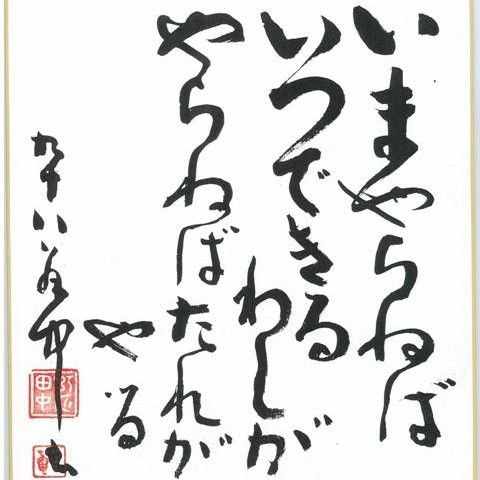 いまやらねば
いつできる
わしが
やらねばたれが
やる
九十八
田中